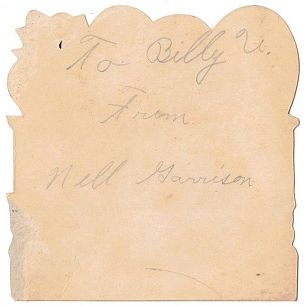 To Billy U.
From
Nell Garrison